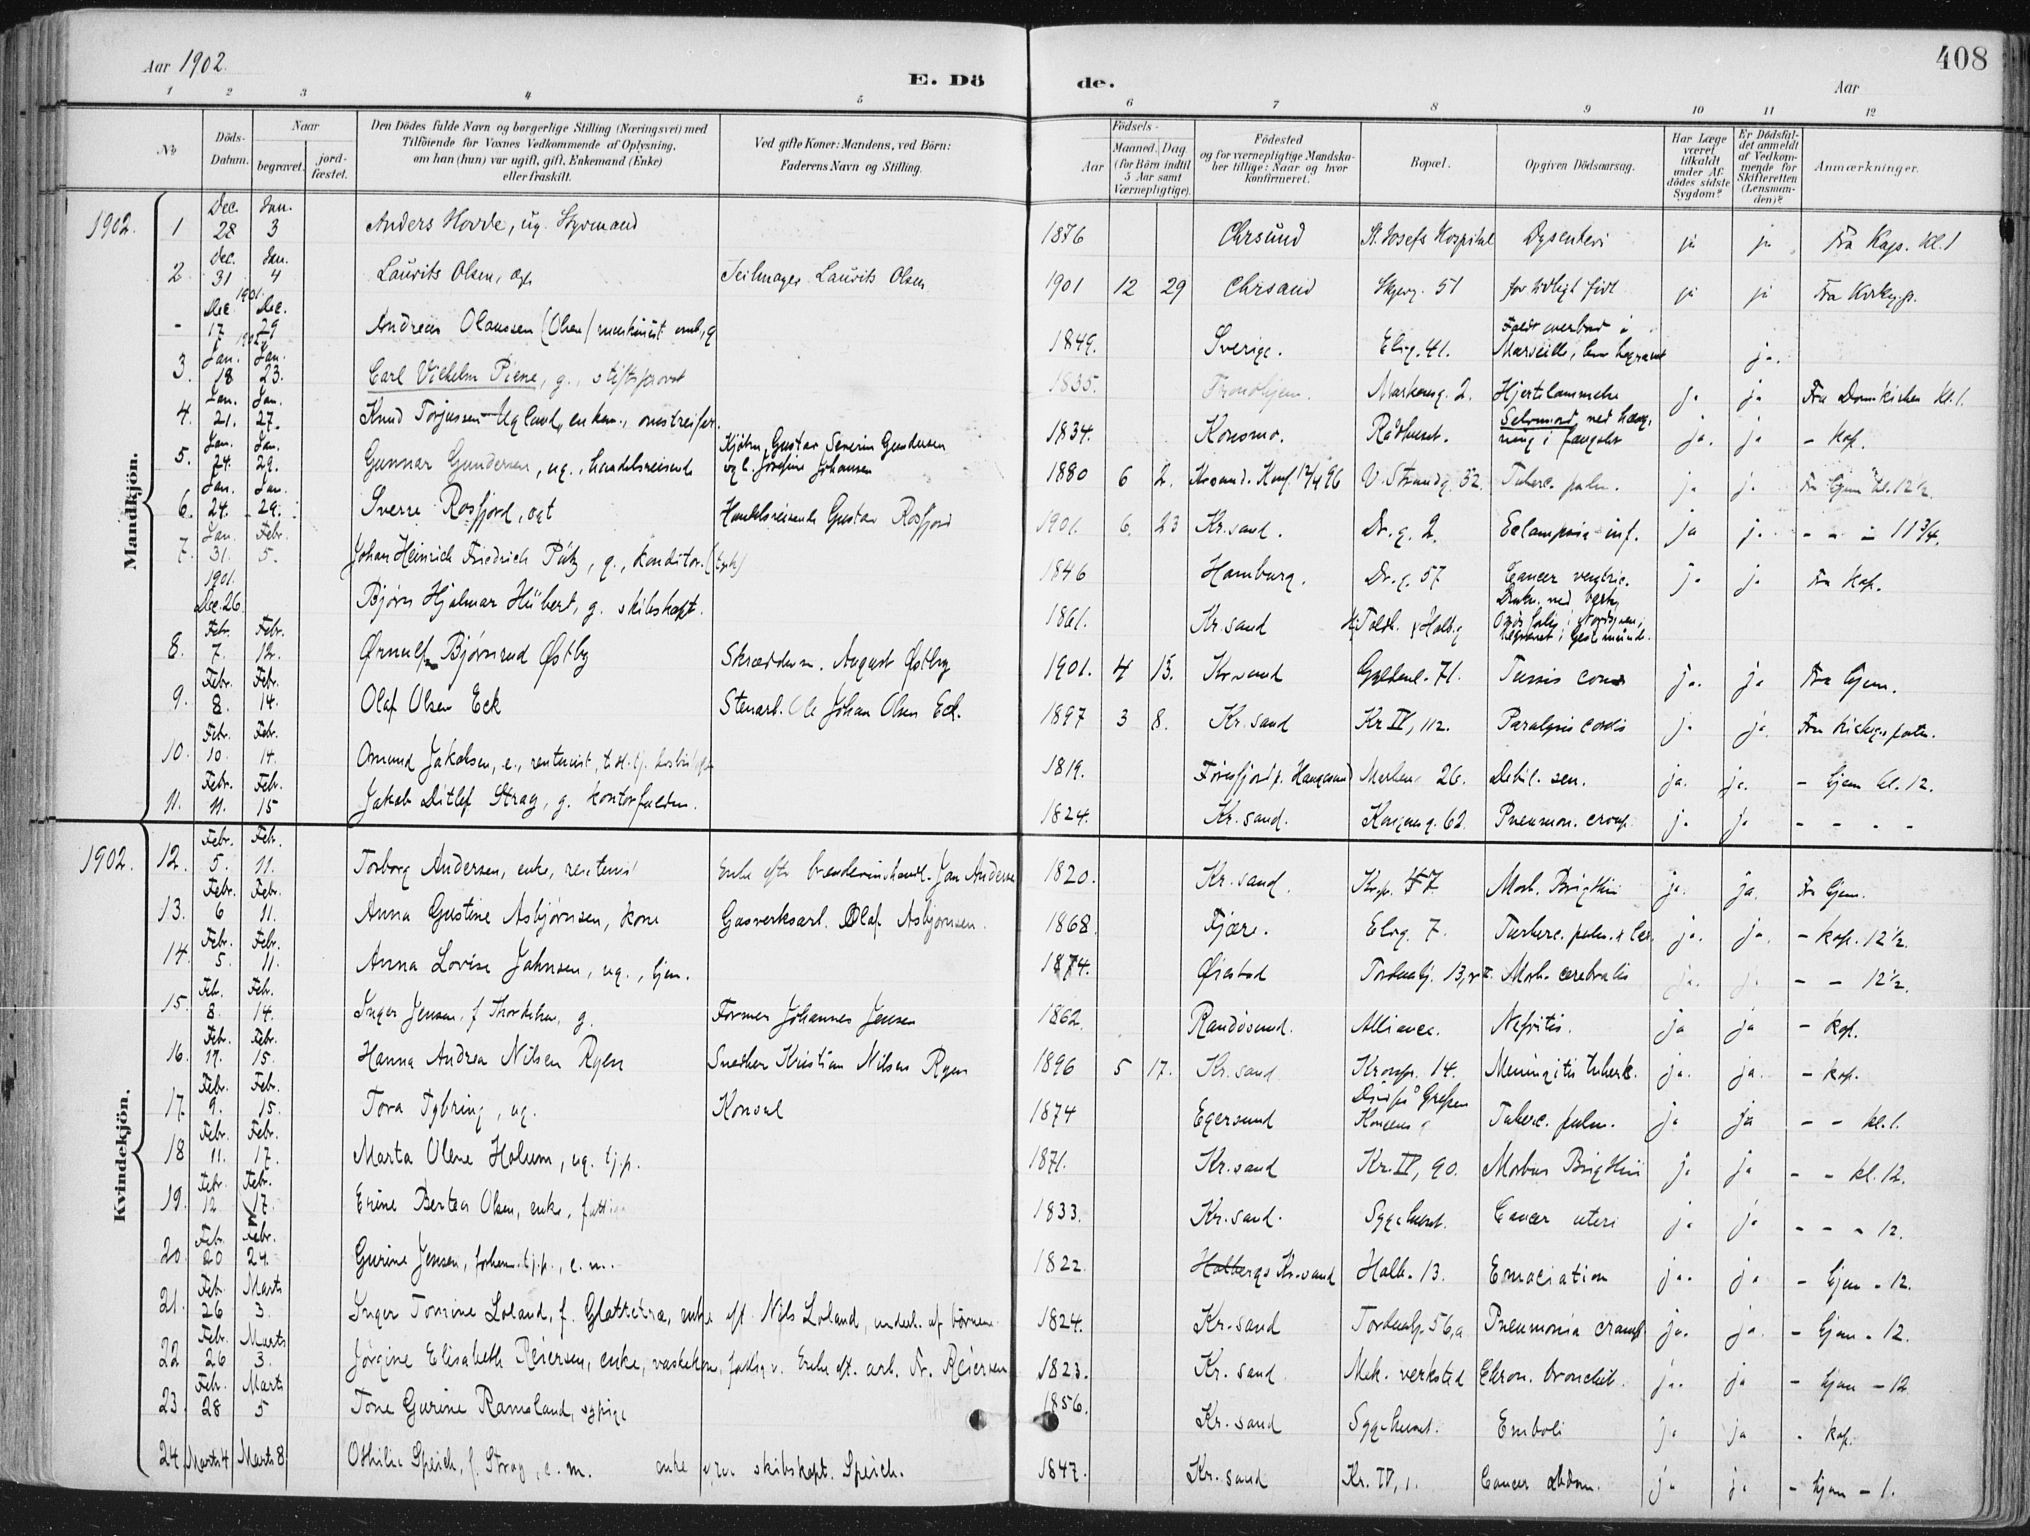 Aar 1902.
E. Dö
de.
Aar
408
1 2 3 4 5 6 7 8 9 10 11 12
No
Döds-Datum.
Naar
begravet.
jord-fæstet.
Den Dödes fulde Navn og borgerlige Stilling (Næringsvei) med
Tilföiende for Voxnes Vedkommende af Oplysning,
om han (hun) var ugift, gift, Enkemand (Enke)
eller fraskilt.
Ved gifte Koner: Mandens, ved Börn:
Faderens Navn og Stilling.
Födsels-
Aar
Maaned. Dag
(for Börn indtil
5 Aar samt
Værnepligtige).
Födested
og for værnepligtige Mandska-
ber tillige: Naar og hvor
Konfirmeret.
Bopæl.
Opgiven Dödsaarsag.
Har Læge
været
tilkaldt
under Af-
dödes sidste
Sygdom?
Er Dödsfal-
det anmeldt
af Vedkom-
mende for
Skifteretten
(Lensman-
den)?
Anmærkninger.
Mandkjön.
1902. 1 Dec. 28 Jan. 3 Anders Hovde, ug. Styrmand 1876 Chrsund St. Josefs Hospital Dysenteri ja ja Fra Kap. kl. 1
2 Dec. 31 Jan. 4 Laurits Olsen, Seilmager Laurits Olsen 1901 12 29 Chrsand 51 for tidligt født ja ja Fra
1901 - Dec 17 Dec. 29 Andreas Olaussen (Olsen) maskinist 1849. Sverige. Elvg. 41. Faldt overbord i Marseille, ja.
1902 3. Jan. 18 Jan. 23. Carl Vilhelm Piene, g., stiftsprovst 1835. Trondhjem. Markensg. 2. Hjertelammelse ja ja Fra Domkirken kl. 1.
4. Jan. 21. Jan. 27. Knud Torjussen Ugland, enkem., omstreifer. 1834. Konsmo. Rådhuset. Selvmord ved hæng-ning i fængslet ja. ja - kap.
5. Jan. 24. Jan. 29. Gunnar Gundersen, ug., handelsreisende Kjøbm. Gustav Severin Gundersen og l. Josefine Johansen 1880 6 2. Krsand. Konf. 12/4 96 V. Strandg. 32. Tuberc. pulm. ja ja. Fra hjem kl. 12½
6. Jan. 24. Jan. 29. Sverre Rosfjord, Handelsreisende Gustav Rosfjord 1901. 6. 23 Kr.sand. Dr. g. 2. Eclampsia inf. ja ja - - - 11¾.
7. Jan. 31. Febr. 5. Johan Heinrich Friedrich Pütz, g., konditor. (tysk) 1846 Hamburg. Dr. g. 57 Cancer ventric. ja ja Fra kap.
1901. Dec. 26 Bjørn Hjalmar Hübert, g. skibskapt. 1861. Kr.sand
8. Febr. 7. Febr. 12. Ørnulf Bjørnrud Østby Skrædderm. August Østby 1901. 4 15. Kr.sand Gyldenl. 71. Tussis conv ja. ja Fra hjem.
9. Febr. 8. Febr. 14. Olaf Olsen Eck Stenarb. Ole Johan Olsen Eck. 1897 3 8. Kr.sand Kr IV, 112. Paralysis cordis ja ja.
10. Febr. 10. Febr. 14. Omund Jakobsen, e., rentenist, 1819. Marken 26. Debil. sen. ja. ja. - hjem kl. 12.
11. Febr. 11. Febr. 15 Jakob Ditlef Stray, g. kontorfuldm. 1824. Kr.sand. Kongensg. 62. Pneumon. croup. ja ja - - - -
Kvindekjön.
1902. 12. Febr. 5. Febr. 11. Torborg Andersen, enke, rentenist Enke efter brændevinshandl. Jan Andersen 1820. Kr.sand. 47 Morb. Brigthii ja. ja. Fr hjem.
13. Febr. 6 Febr. 11. Anna Gustine Asbjørnsen, kone Gasverksarb. Olaf Asbjørnsen. 1868. Fjære. Elvg. 7. Tuberc. pulm. ja. ja. - kap. 12½.
14. Febr. 5. Febr. 11. Anna Lovise Jahnsen, ug., hjem. 1874. Øiestad Morb. cerebralis ja. ja - - 12½.
15. Feb. 8. Febr. 14. Inger Jensen, f. g. Former Johannes Jensen 1862. Randøsund. Alliance. Nefritis. ja ja - kap.
16. Febr. 11. Febr. 15. Hanna Andrea Nilsen Ryen Snedker Kristian Nilsen Ryen 1896 5 17. Kr.sand Kronpr. 14. Meningitis tuberk. ja. ja. - kap.
17 Febr. 9. Febr. 15. Tora Tybring, ug. Konsul 1874 Egersund Død på Grefsen Kongens g Tuberc. pulm. ja ja - - kl. 1.
18 Febr. 11. Febr. 17. Marta Olene Holum, ug. tj.p. 1871. Kr.sand Kr. IV, 90. Morbus Brigthii ja ja - - kl. 12.
19. Febr. 12 Febr. 17. Erine Bertea Olsen, enke, fattig 1833. Kr.sand. Sygehuset. Cancer uteri ja ja - - - 12.
20. Feb. 20 Febr. 24. Gurine Jensen, forhen. tj.p., e. m. 1822. Holbergs Kr.sand Holb. 13. Emaciation ja. ja - hjem - 12.
21. Feb. 26 Marts 3. Inger Tomine Loland, f. Glattetræ, enke eft. Nils Loland, underh. af børnene 1824. Kr.sand Tordenskj. 56,a Pneumonia croup ja. ja. - hjem - 12.
22 Febr. 26 Marts 3. Jørgine Elisabeth Reiersen, enke, vaskekone, fattigv. Enke eft. arb. Fr. Reiersen 1823. Kr.sand Mek. verksted Chron. bronchit. ja. ja - hjem - 12.
23. Febr. 28 Marts 5 Tone Gurine Ramsland, sypige 1856. Kr.sand Sygehuset. Emboli ja ja - kap.
24. Marts 4 Marts 8. Othilie Speich, f. Stray, e. m. enke skibskapt. Speich. 1847. Kr.sand Kr. IV, 1. Cancer abdom. ja ja. - hjem - 1.